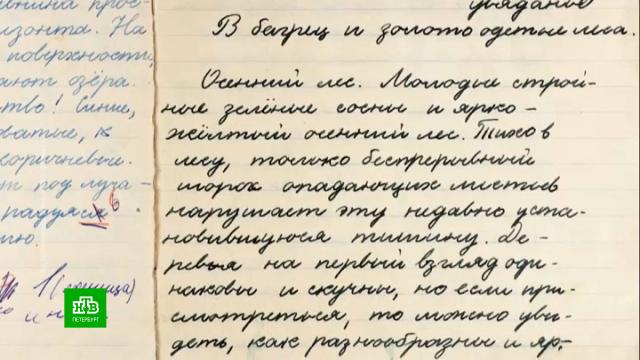 внина прос-
изонта. На
поверхности
ают озёра.
ство! Синие,
ватые, к
коричневые.
т под луча-
радуяся б
ию.
1 (
и н
НТВ
ПЕТЕРБУРГ
увядание
В багрец и золото одетые леса.
Осенний лес. Молодые строй-
ные зелёные сосны и ярко-
жёлтый осенний лес. Тихо в
лесу, только беспрерывный
шорох опадающих листьев
нарушает эту недавно уста-
новившуюся тишину. Де-
ревья на первый взгляд оди-
наковы и скучны, но если при-
смотреться, то можно уви-
деть, как разнообразны и яр-